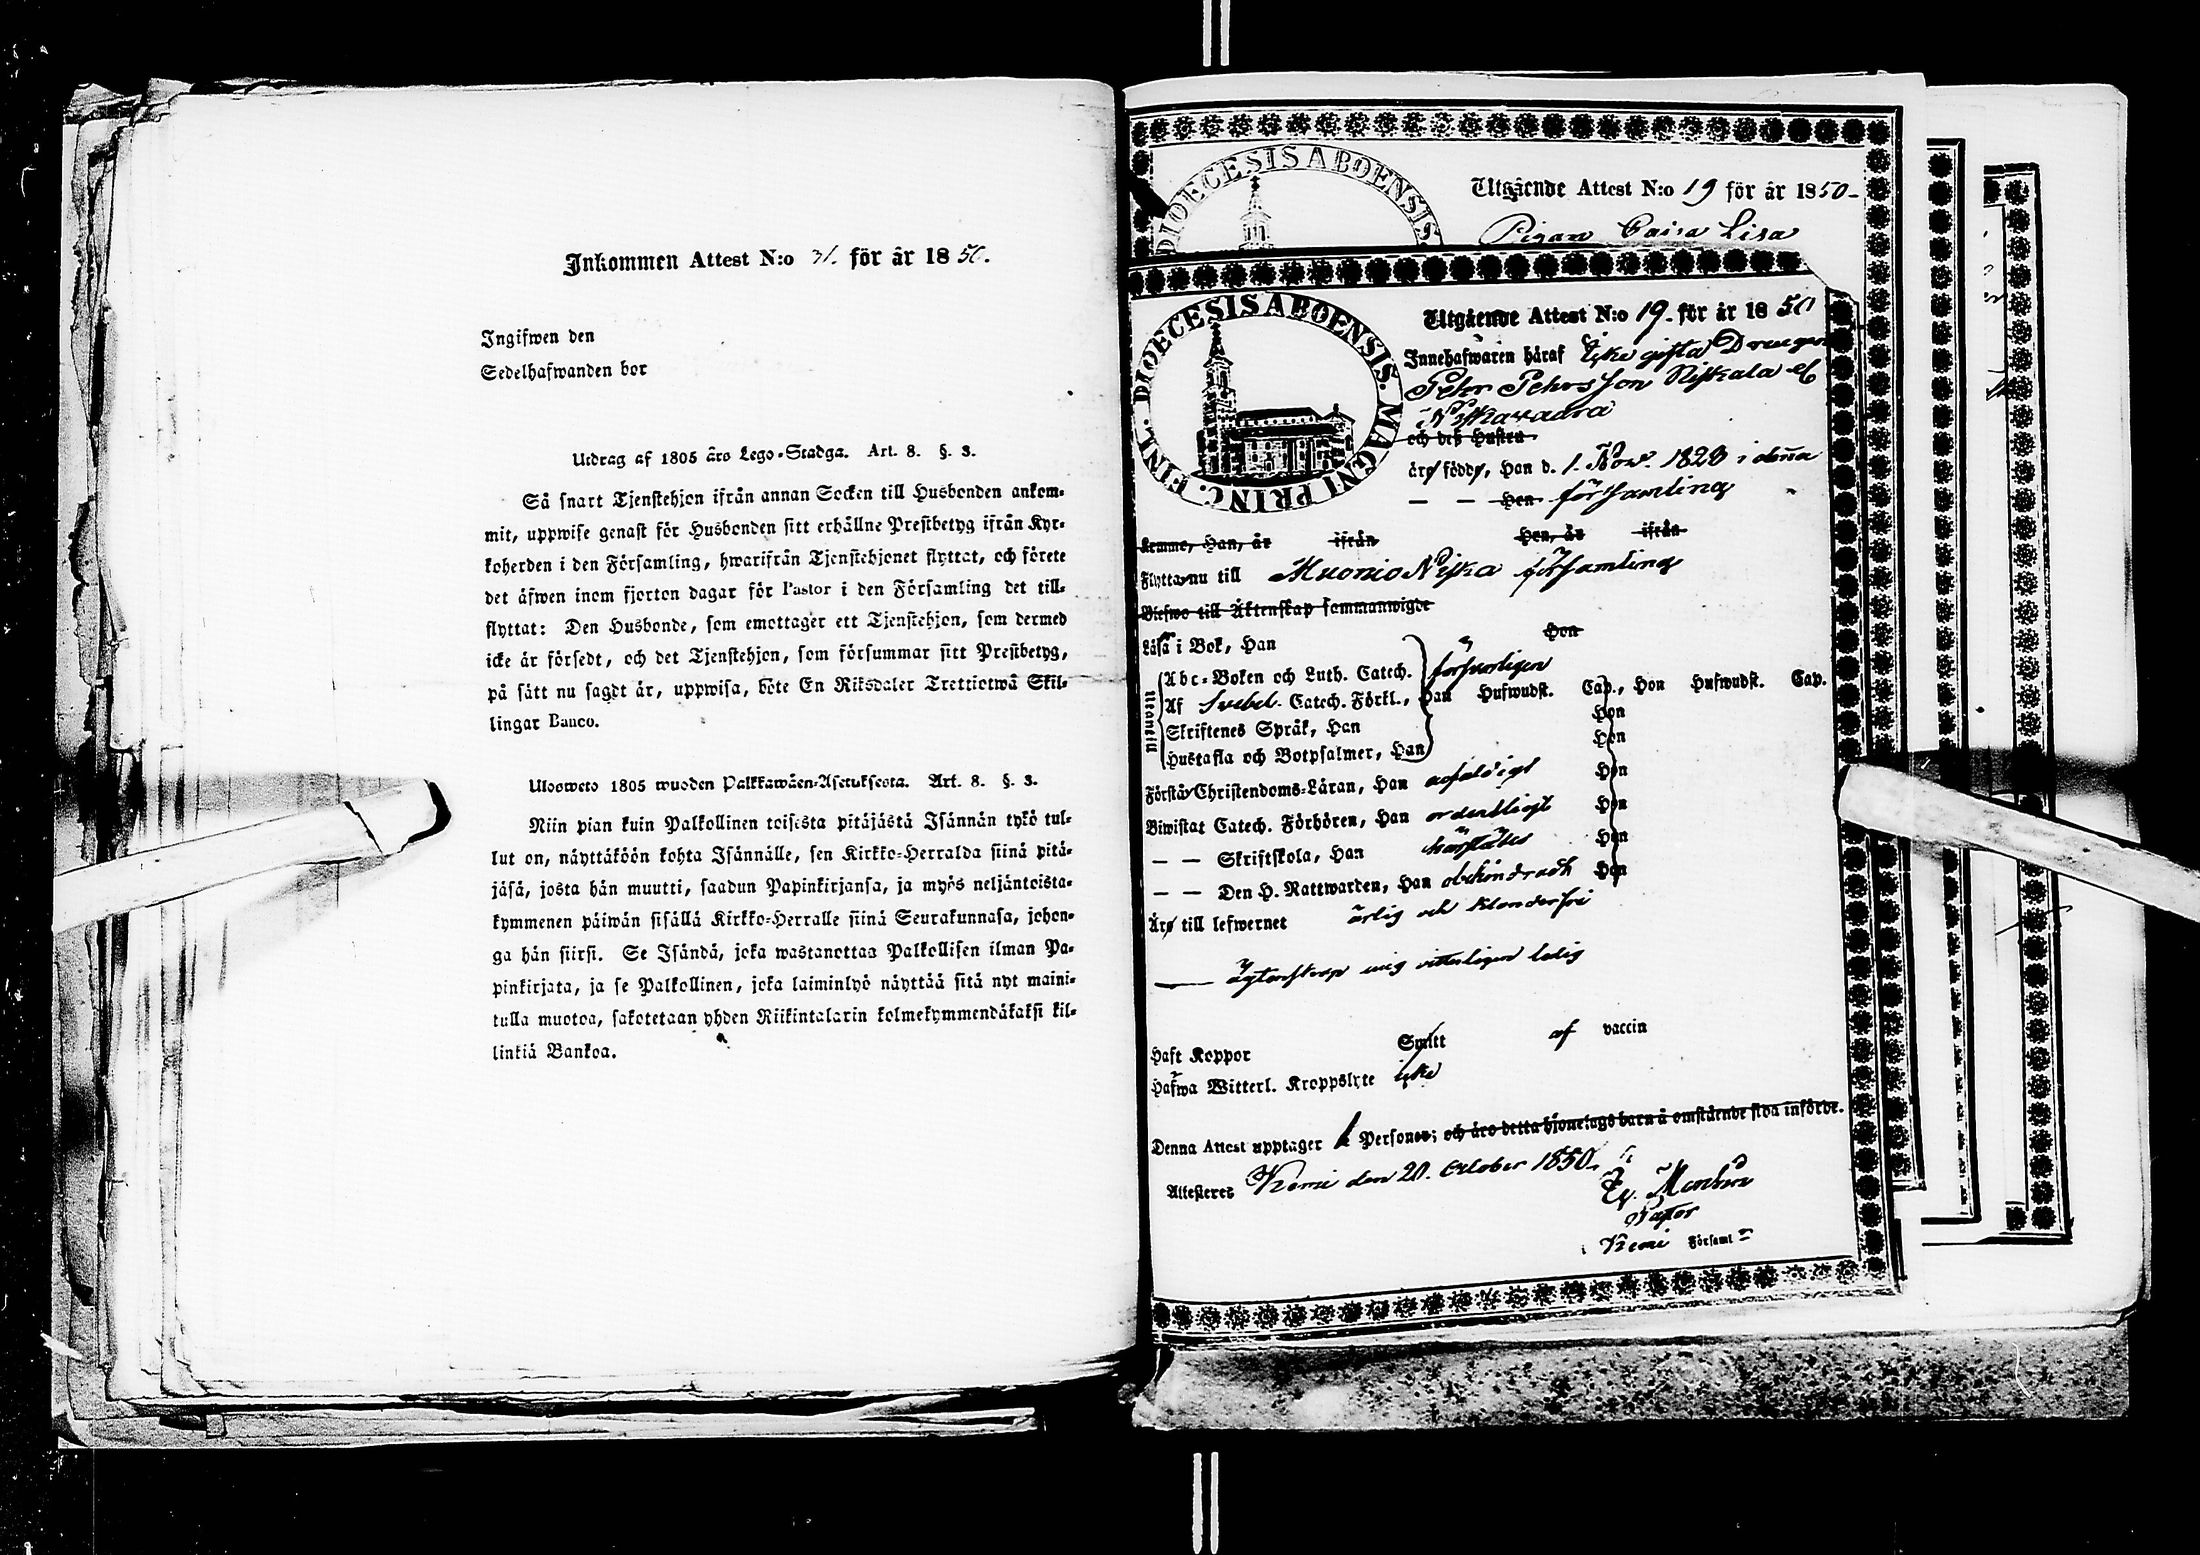 Inkommen Attest N:o 31. för år 1850.
Ingifwen den
Sedelhafwanden bor
Utdrag af 1805 års Lego-Stadga. Art. 8. §. 3.
Så snart Tjenstehjon ifrån annan Socken till Husbonden ankom-
mit, uppwise genast för Husbonden sitt erhållne Prestbetyg ifrån Kyr-
koherden i den Församling, hwarifrån Tjenstehjonet flyttat, och förete
det äfwen inom fjorton dagar för Pastor i den Församling det till-
flyttat: Den Husbonde, som emottager ett Tjenstehjon, som dermed
icke är försedt, och det Tjenstehjon, som försummar sitt Prestbetyg,
på sätt nu sagdt är, uppwisa, böte En Riksdaler Trettiotwå Skil-
lingar Banco.
Ulosweto 1805 wuoden Palkkawäen-Asetuksesta. Art. 8. §. 3.
Niin pian kuin Palkollinen toisesta pitäjästä Isännän tykö tul-
lut on, näyttäköön kohta Isännälle, sen Kirkko-Herralda siinä pitä-
jäsä, josta hän muutti, saadun Papinkirjansa, ja myös neljäntoista-
kymmenen päiwän sisällä Kirkko-Herralle siinä Seurakunnasa, johon-
ga hän siirsi. Se Isändä, joka wastanottaa Palkollisen ilman Pa-
pinkirjata, ja se Palkollinen, joka laiminlyö näyttää sitä nyt maini-
tulla muotoa, sakotetaan yhden Riikintalarin kolmekymmendäkaksi kil-
linkiä Bankoa.
DIOECESIS ABOENSIS
Utgående Attest N:o 19 för år 1850-
Pigan Caisa Lisa
DIOECESIS ABOENSIS. MAGNI PRINC. FINL.
Utgående Attest N:o 19. för år 1850
Innehafwaren häraf Icke gifta Drengen
Pehr Pehrsson Niskala
Niskavaara
och dess Hustru
äro födde, Han d. 1. Nov. 1828 i denna
— — Hon församling
Komne, Han, år ifrån Hon, år ifrån
Flytta nu till Muonio Niska församling
Blefwo till Äktenskap sammanwigde
Läsa i Bok, Han Hon
Abc-Boken och Luth. Catech. försvarligen
Utantill
Af Svebel. Catech. Förkl., Han Hufwudst. Cap., Hon Hufwudst. Cap.
Skriftenes Språk, Han Hon
Hustafla och Botpsalmer, Han Hon
Förstå Christendoms-Läran, Han Hon
Biwistat Catech. Förhören, Han ordentligt Hon
— — Skriftskola, Han Hon
— — Den H. Nattwarden, Han obehindradt Hon
Äro till lefwernet ärlig och klanderfri
— ägtenskap mig vitterligen ledig
Haft Koppor Smitt af vaccin
Hafwa Witterl. Kroppslyte icke
Denna Attest upptager 1 Personer; och äro detta hjonelags barn å omstående sida införde.
Attesteres Kemi den 20. October 1850.
Pastor
Kemi Församl